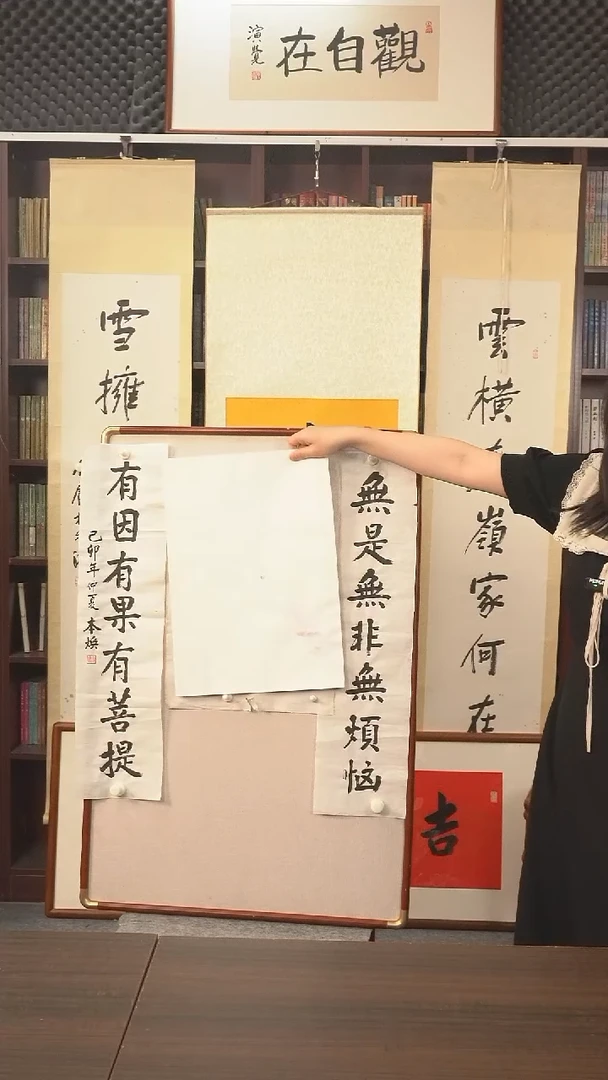 觀自在
演覺
雲橫
嶺家何在
雪擁
無是無非無煩惱
有因有果有菩提
己卯年仲夏 本煥
吉